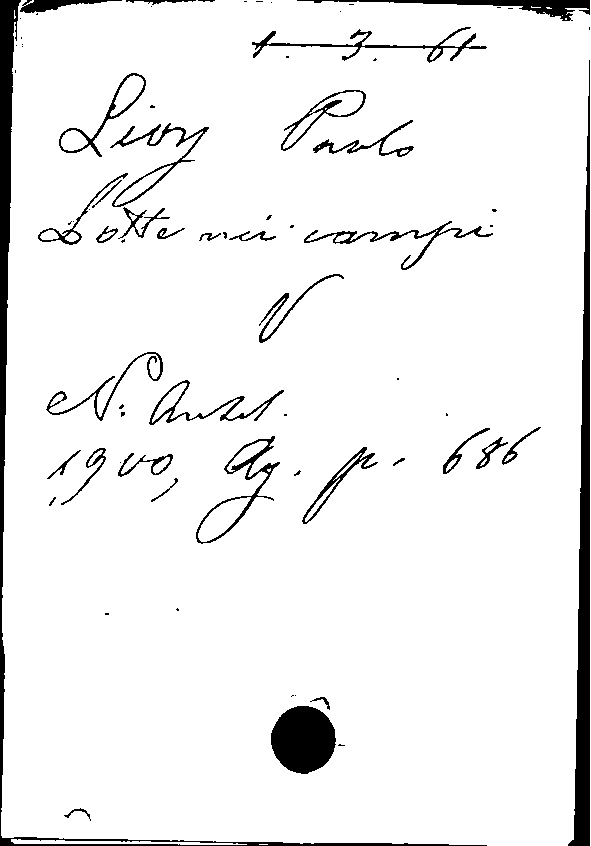 1. 3. 61
Lioy Paolo
Lotte nei campi
V
N. Antol.
1900, Ag. p. 686